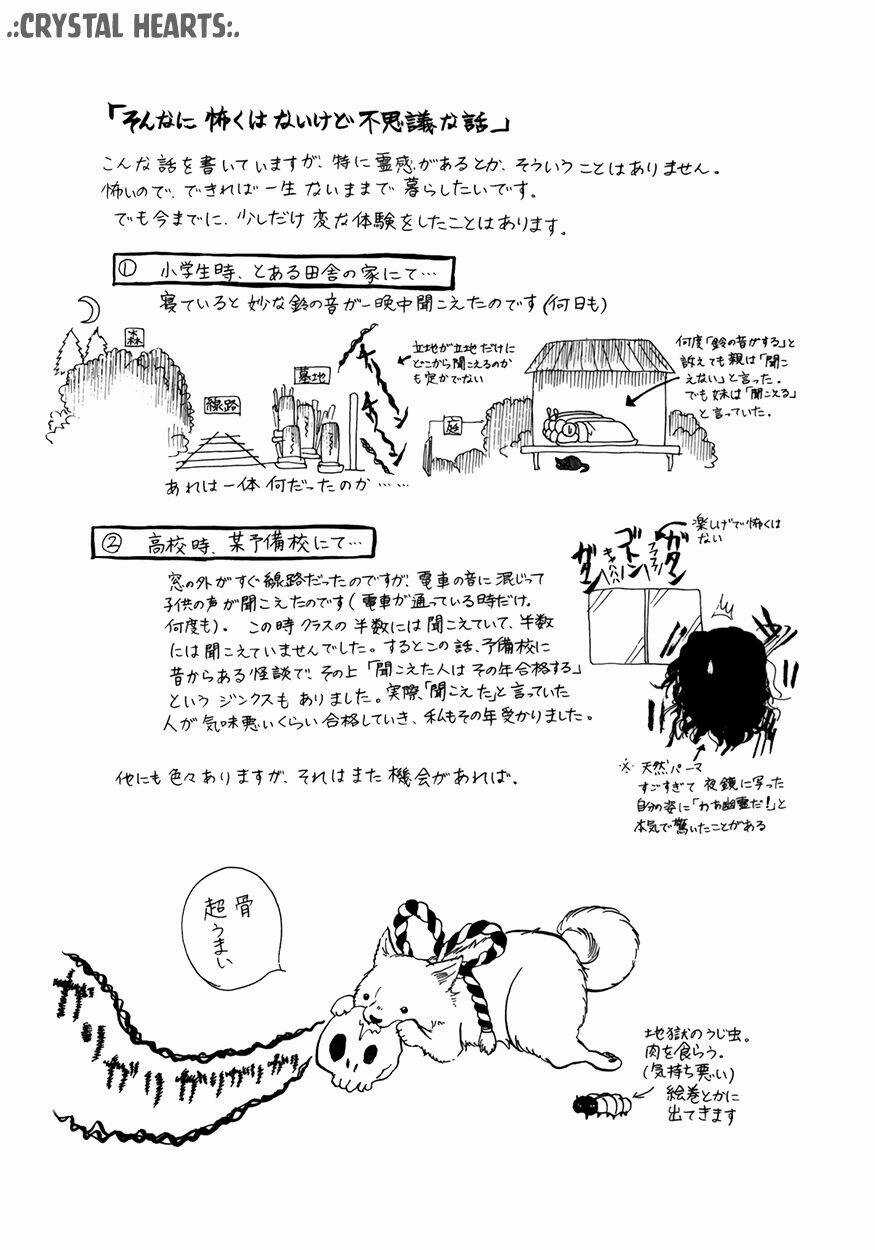 .:CRYSTAL HEARTS:.
「そんなに怖くはないけど不思議な話」
こんな話を書いていますが、特に霊感があるとか、そういうことはありません。
怖いので、できれば一生ないままで暮らしたいです。
でも今までに、少しだけ変な体験をしたことはあります。
① 小学生時、とある田舎の家にて…
寝ていると妙な鈴の音が一晩中聞こえたのです(何日も)
森
線路
墓地
チリーン
チリーン
立地が立地だけに
どこから聞こえるのか
も定かでない
庭
何度「鈴の音がする」と
訴えても親は「聞こ
えない」と言った。
でも妹は「聞こえる」
と言っていた。
あれは一体何だったのか……
② 高校時、某予備校にて…
窓の外がすぐ線路だったのですが、電車の音に混じって
子供の声が聞こえたのです(電車が通っている時だけ。
何度も)。この時クラスの半数には聞こえていて、半数
には聞こえていませんでした。するとこの話、予備校に
昔からある怪談で、その上「聞こえた人はその年合格する」
というジンクスもありました。実際、「聞こえた」と言っていた
人が気味悪いくらい合格していき、私もその年受かりました。
楽しげで怖くは
ない
ガタン
ゴトン
ガタン
※天然パーマ
すごすぎて夜鏡に写った
自分の姿に「わあ幽霊だ!」と
本気で驚いたことがある
他にも色々ありますが、それはまた機会があれば。
骨
超うまい
地獄のうじ虫。
肉を食らう。
(気持ち悪い)
絵巻とかに
出てきます